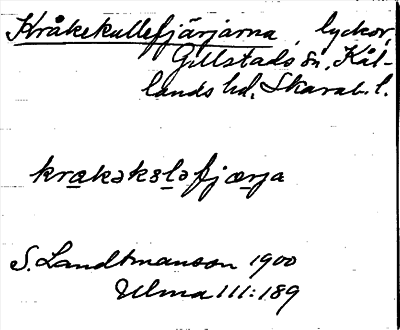 Kråkekullefjärjarna, lyckor,
Gillstads sn, Kål-
lands hd. Skarab. l.
krakəksləfjærja
S. Landtmanson 1900
Ulma 111:189